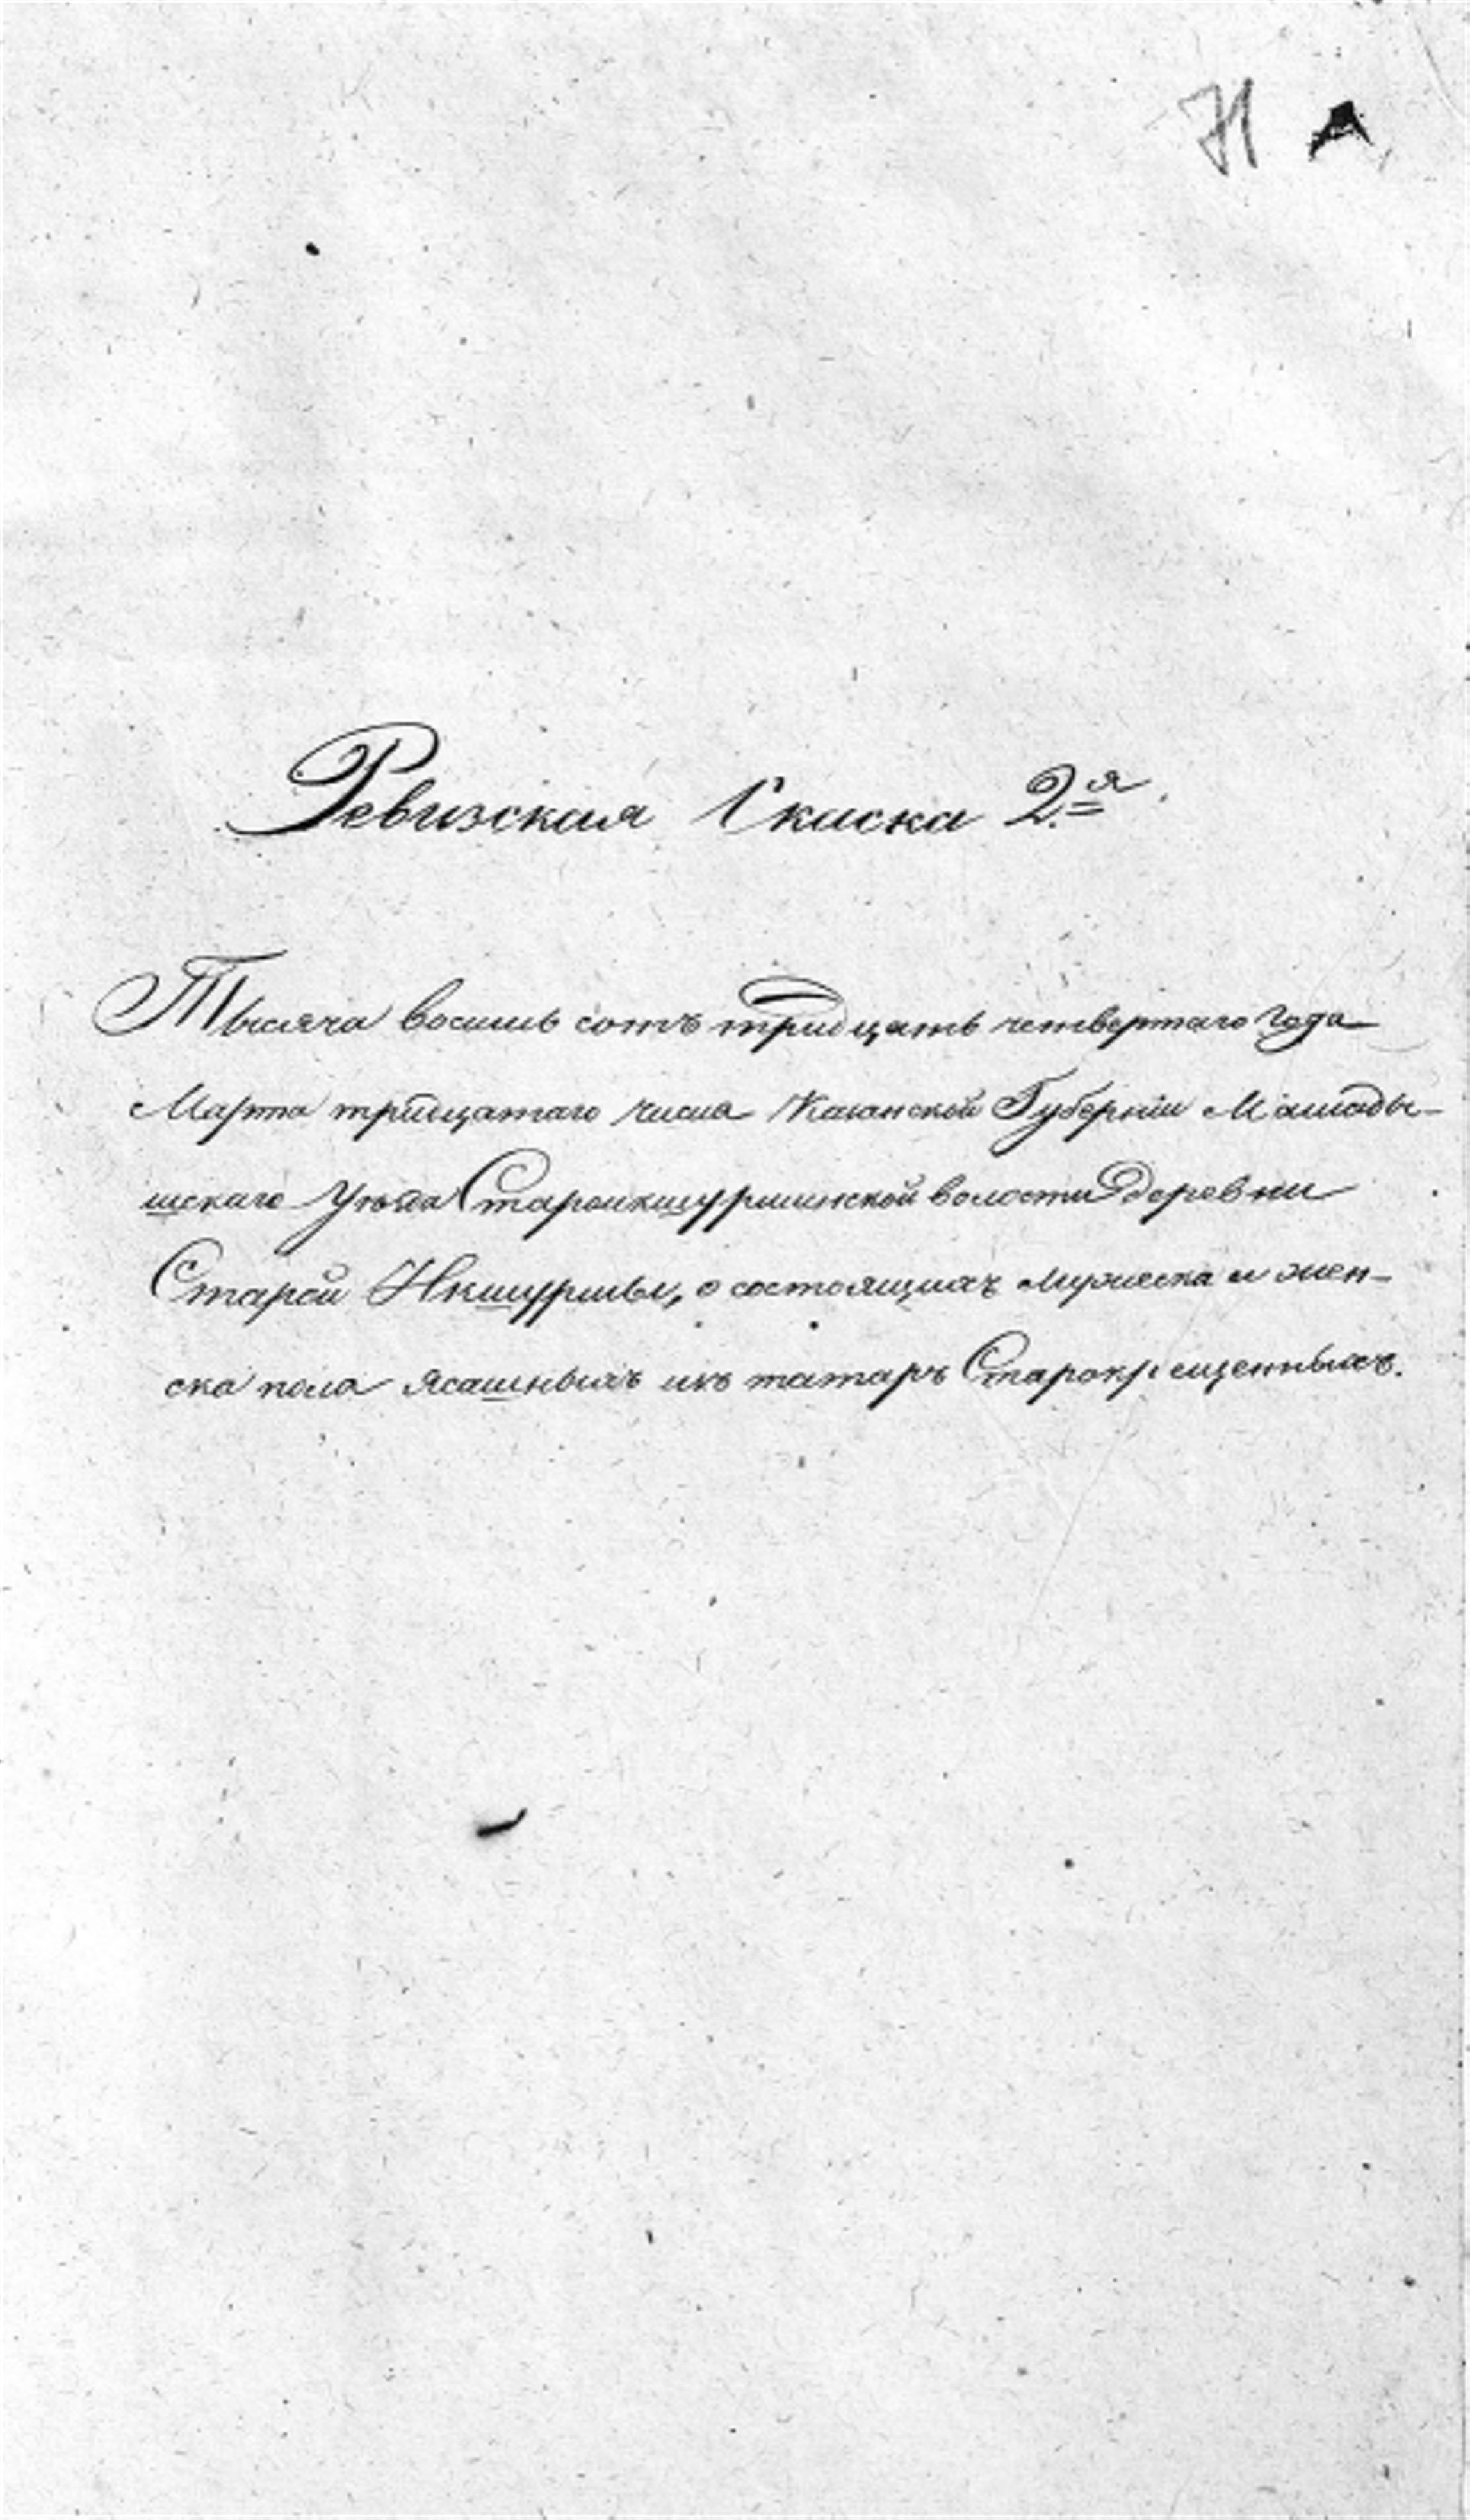 71
Ревизская Скаска 2.я
Тысяча восемь сотъ тридцать четвертаго года
Марта тридцатаго числа Казанской Губернии Мамады-
шскаго Уѣзда Староикшурминской волости деревни
Старой Икшурмы, о состоящихъ мужеска и жен-
ска пола Ясашныхъ изъ татаръ Старокрещенныхъ.